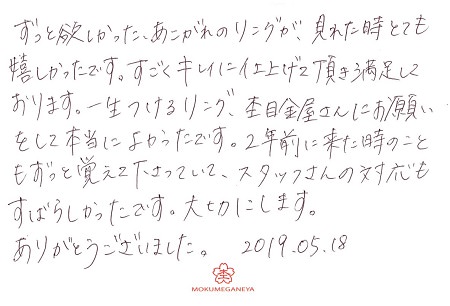 ずっと欲しかった、あこがれのリングが、見れた時とても
嬉しかったです。すごくキレイに仕上げて頂き満足して
おります。一生つけるリング、杢目金屋さんにお願い
をして本当によかったです。2年前に来た時のこと
もずっと覚えて下さっていて、スタッフさんの対応も
すばらしかったです。大切にします。
ありがとうございました。 2019.05.18
MOKUMEGANEYA